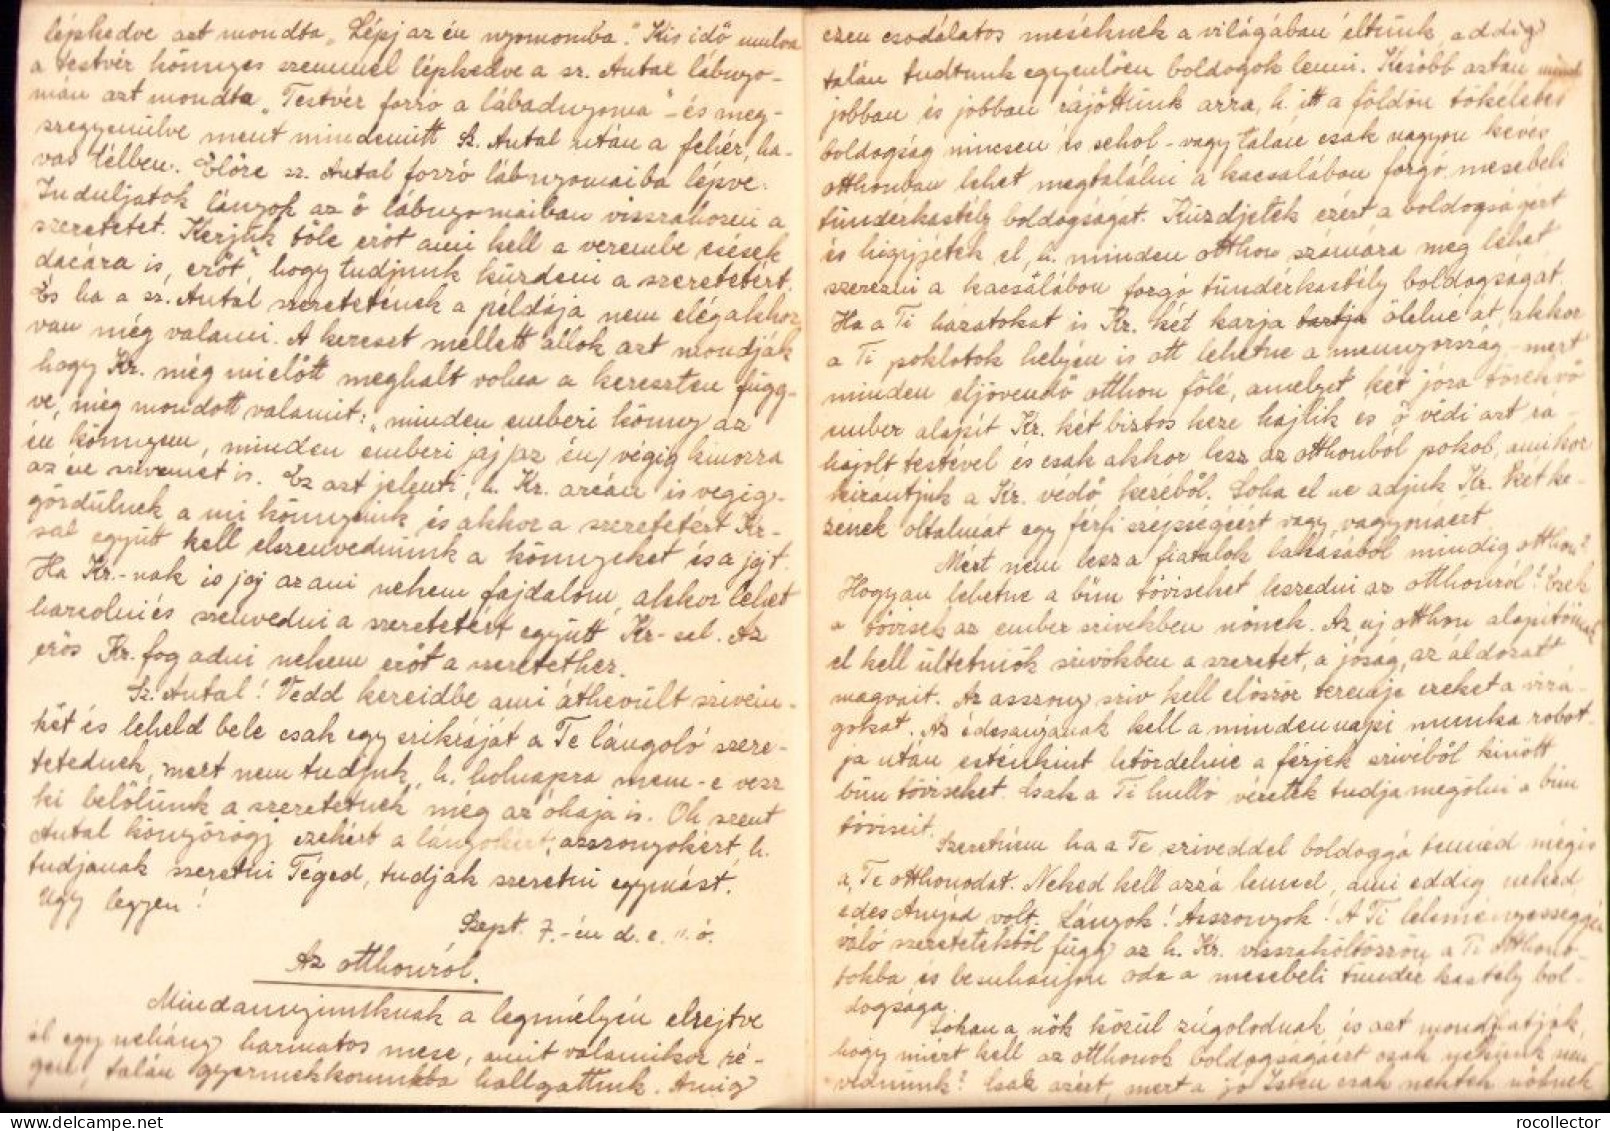 lépkedve azt mondta „Lépj az én nyomomba." Kis idő mulva
a testvér könnyes szemmel lépkedve a sz. Antal lábnyo-
mán azt mondta „Testvér forró a lábadnyoma" – és meg-
szegyenülve ment mindenütt Sz. Antal után a fehér, ha-
vas télben. Előre sz. Antal forró lábnyomaiba lépve.
Induljatok lányok az ő lábnyomaiban visszahozni a
szeretetet. Kérjük tőle erőt ami kell a verembe esések
dacára is, erőt, hogy tudjunk küzdeni a szeretetért.
És ha a sz. Antal szeretetének a példája nem elég akkor
van még valami. A kereszt mellett állok azt mondják
hogy Kr. még mielőtt meghalt volna a kereszten függ-
ve, még mondott valamit: „minden emberi könny az
én könnyem, minden emberi jaj /az én/ végig kinozza
az én szivemet is. Ez azt jelenti, h. Kr. arcán is végig-
gördülnek a mi könnyeink és akkor a szeretetért Kr-
sal együtt kell elszenvednünk a könnyeket és a jajt.
Ha Kr.-nak is jaj az ami nekem fájdalom, akkor lehet
harcolni és szenvedni a szeretetért együtt Kr-sal. Az
erős Kr. fog adni nekem erőt a szeretethez.
Sz. Antal! Vedd kezeidbe ami áthevült szivein-
két és leheld bele csak egy szikráját a Te lángoló szere-
tetednek, mert nem tudjuk, h. holnapra nem-e vesz
ki belőlünk a szeretetnek még az óhaja is. Oh szent
Antal könyörögj ezekért a lányokért, asszonyokért, h.
tudjanak szeretni Téged, tudják szeretni egymást.
Ugy legyen!
Szept. 7.-én d. e. ó.
Az otthonról.
Mindannyiunknak a legmélyén elrejtve
él egy néhány harmatos mese, amit valamikor ré-
gen, talán gyermekkorunkba hallgattunk. Amig
ezen csodálatos meséknek a világában éltünk, addig
talán tudtunk egyenlően boldogok lenni. Később aztán mind
jobban és jobban rájöttünk arra, h. itt a földön tökéletes
boldogság nincsen is sehol – vagy talán csak nagyon kevés
otthonban lehet megtalálni a kacsalábon forgó mesebeli
tündérkastély boldogságát. Küzdjetek ezért a boldogságért
és higyjétek el, h. minden otthon számára meg lehet
szerezni a kacsalábon forgó tündérkastély boldogságát.
Ha a Ti házatokat is Kr. két karja tartja ölelné át, akkor
a Ti poklotok helyén is ott lehetne a mennyország – mert
minden eljövendő otthon fölé, amelyet két jóra törekvő
ember alapít Kr. két biztos keze hajlik és ő védi azt rá-
hajolt testével és csak akkor lesz az otthonból pokol, amikor
kirántjuk a Kr. védő kezéből. Soha el ne adjuk Kr. két ke-
zének oltalmát egy férfi szépségéért vagy vagyonáért.
Mért nem lesz a fiatalok lakásából mindig otthon?
Hogyan lehetne a bűn töviseket leszedni az otthonról? Ezek
a tövisek az ember szivekben nőnek. Az uj otthon alapitóinak
el kell ültetniök szivükben a szeretet, a jóság, az áldozat
magvait. Az asszony sziv kell először teremje ezeket a virá-
gokat. Az édesanyának kell a mindennapi munka robot-
ja után esténkint letördelnie a férjek szivéből kinőtt
bűn töviseket. Csak a Ti hulló véretek tudja megölni a bűn
töviseit.
Szeretném ha a Te sziveddel boldoggá tennéd mégis
a Te otthonodat. Neked kell azzá lenned, ami eddig neked
édes Anyád volt. Lányok! Asszonyok! A Ti leleményességgén
való szeretetektől függ az h. Kr. visszaköltözzön a Ti otthono-
tokba és besuhanjon oda a mesebeli tünder kastély bol-
dogsága.
Sokan a nők közül zúgolódnak és azt mondhatják,
hogy miért kell az otthonok boldogságáért csak nekünk szen-
vednünk? Csak azért, mert a jó Isten csak nektek nőknek